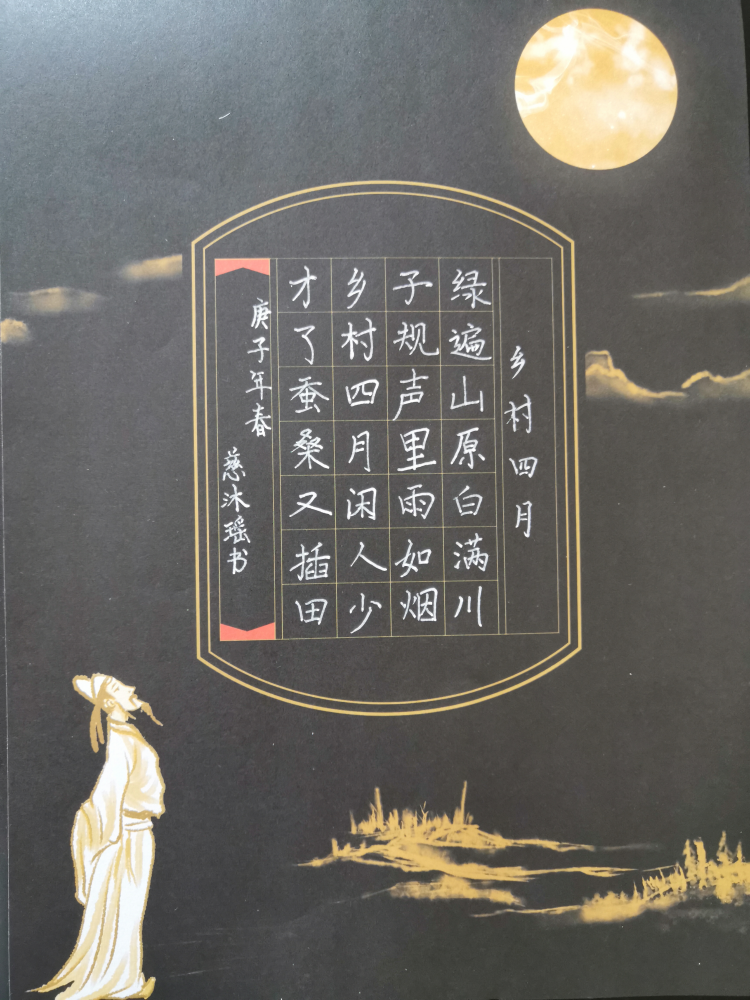 乡村四月
绿遍山原白满川
子规声里雨如烟
乡村四月闲人少
才了蚕桑又插田
庚子年春
慈沐瑶书